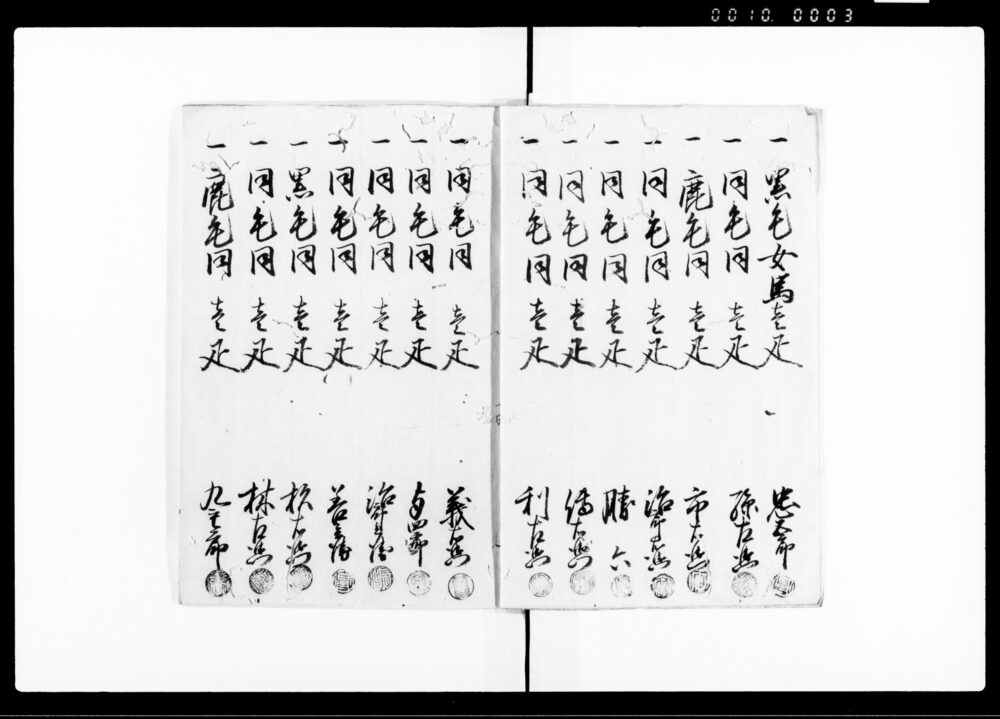 0010. 0003
一 黒毛女馬 壱疋 忠五郎
一 同毛同 壱疋 孫左衛門
一 鹿毛同 壱疋 市左衛門
一 同毛同 壱疋 治郎右衛門
一 同毛同 壱疋 勝六
一 同毛同 壱疋 伝右衛門
一 同毛同 壱疋 利左衛門
一 同毛同 壱疋 義左衛門
一 同毛同 壱疋 与四郎
一 同毛同 壱疋
一 同毛同 壱疋
一 黒毛同 壱疋
一 同毛同 壱疋 林右衛門
一 鹿毛同 壱疋 九郎